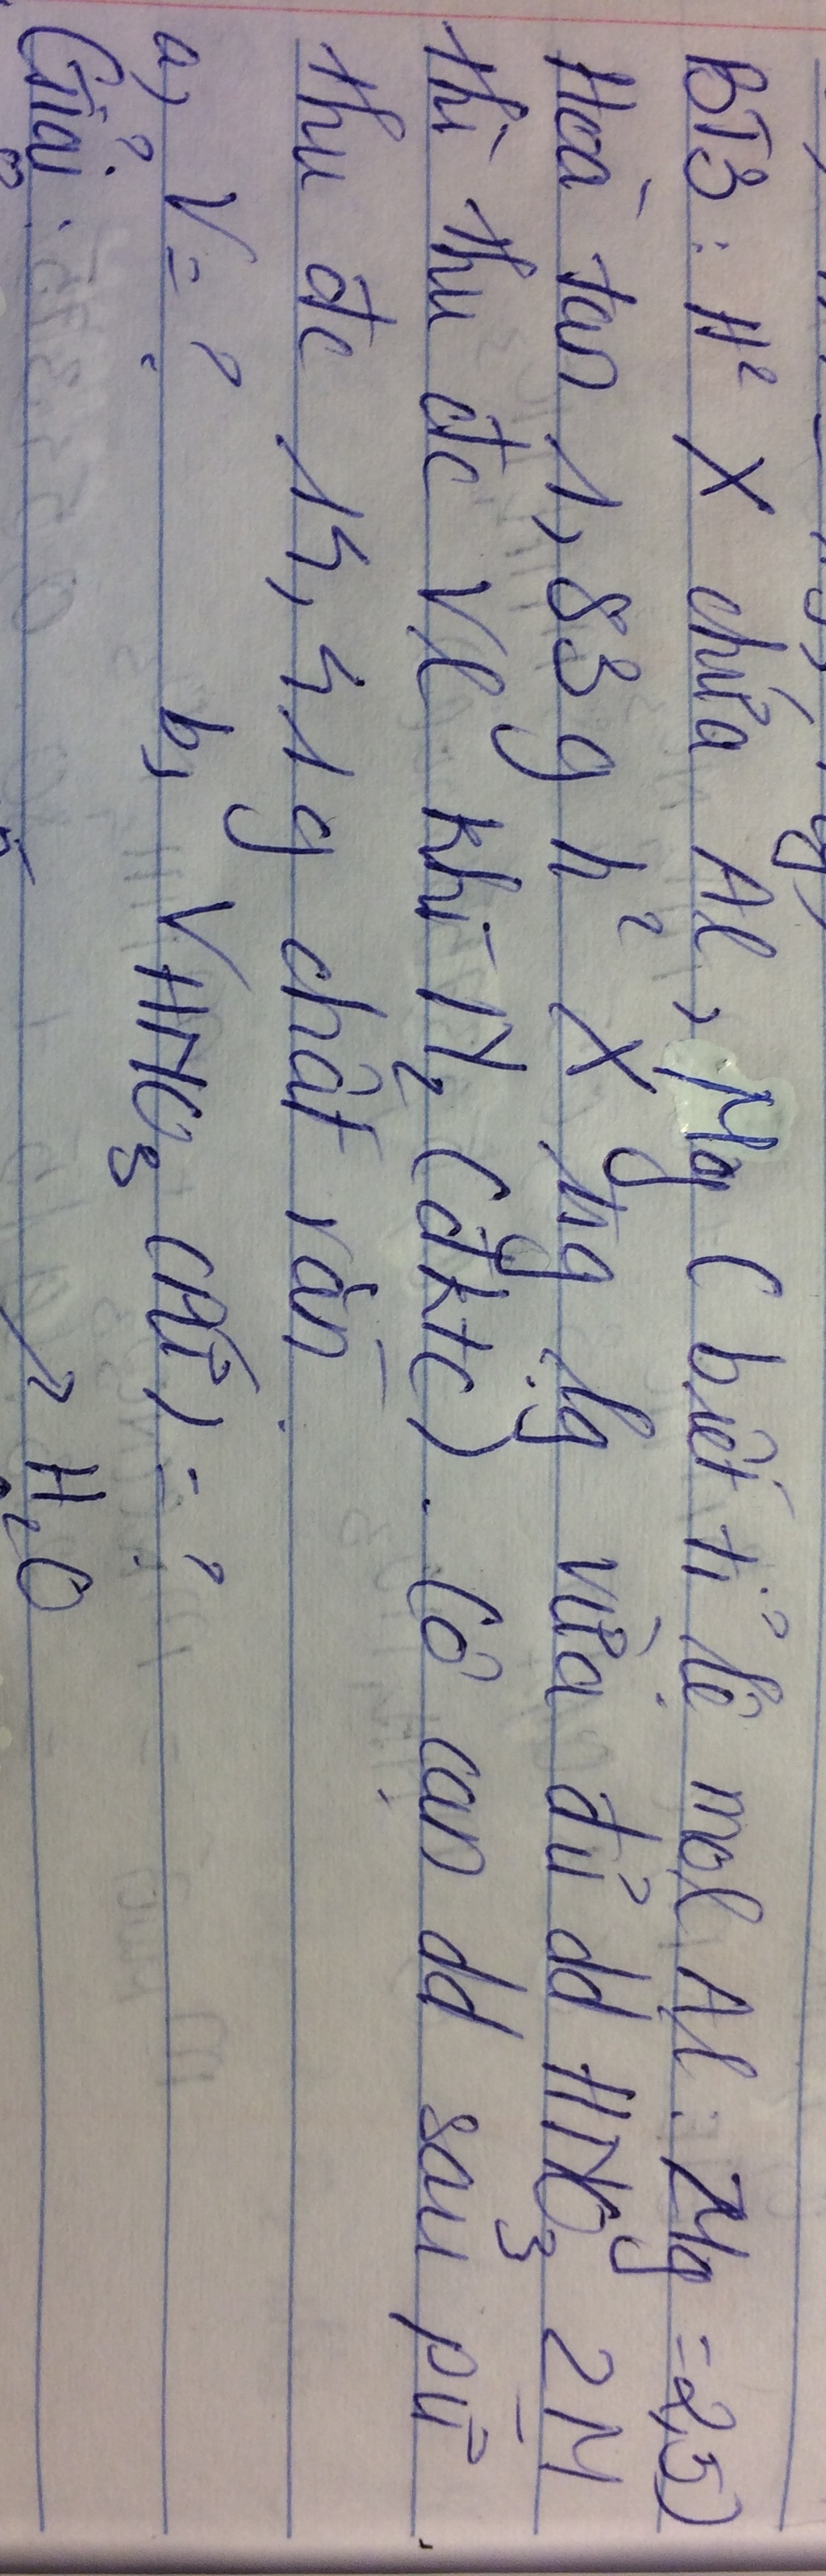 BT3: H² X chứa Al, Mg (biết tỉ lệ mol Al: Mg = 2,5)
Hoà tan 1,83g h² X = dd HNO₃ 2M
thì thu đc Vl khí N₂ (đktc). Cô cạn dd sau pứ
thu đc 13,31g chất rắn.
a, V = ? b, VHNO₃ (PƯ) = ?
Giải:
H₂O